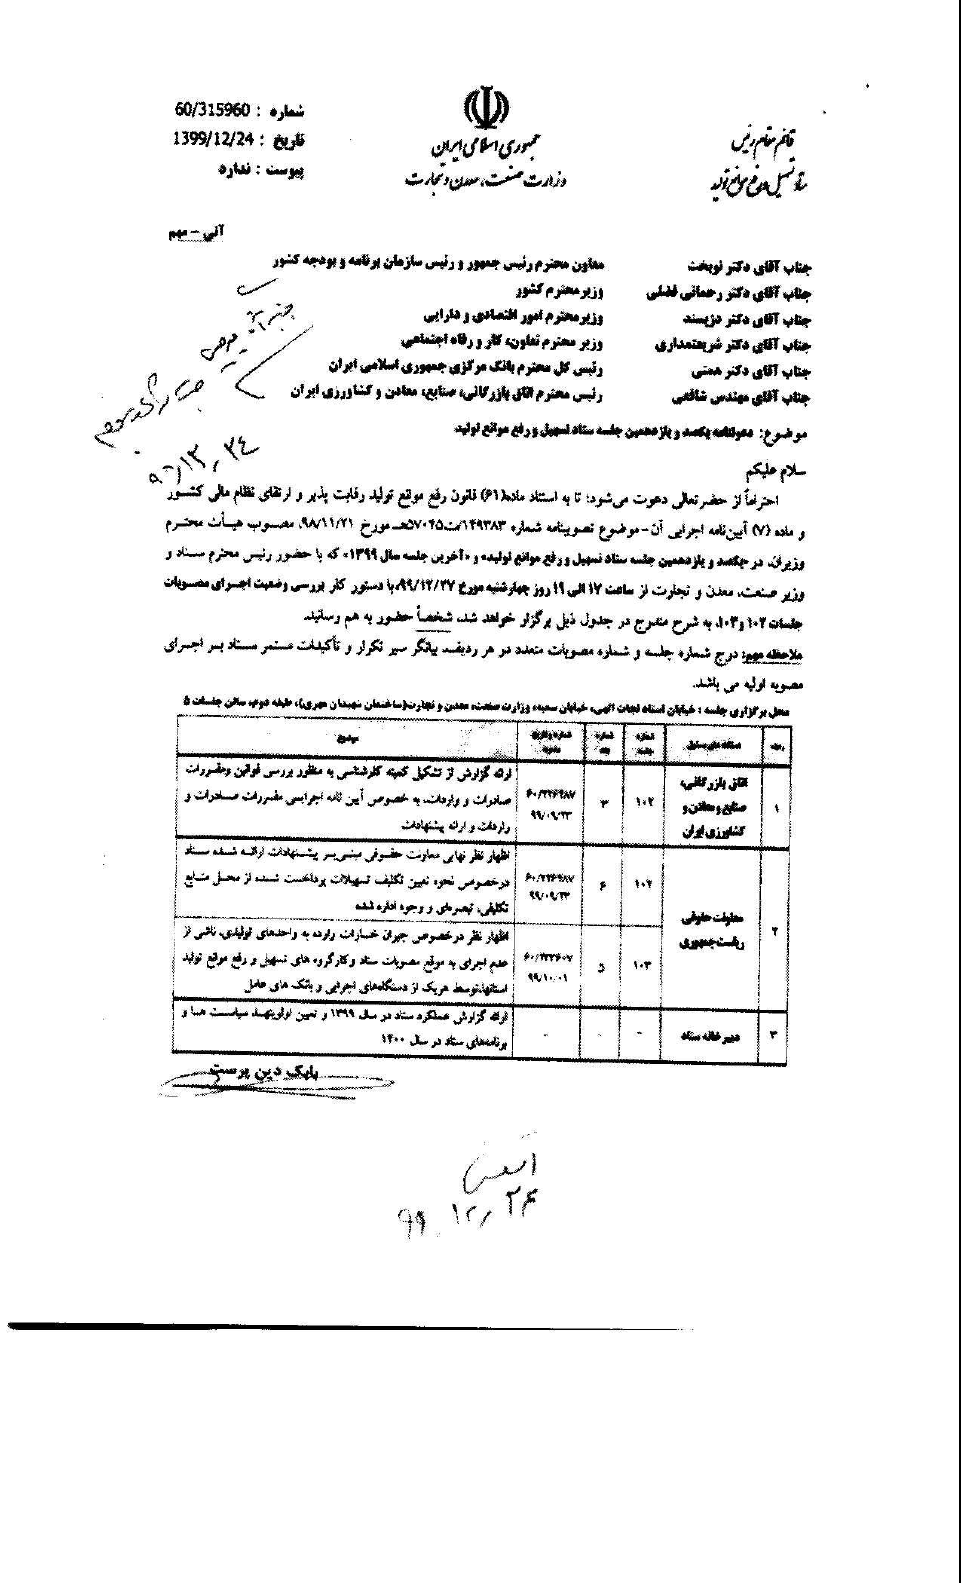 شماره : 60/315960
تاریخ : 1399/12/24
پیوست : ندارد
جمهوری اسلامی ایران
وزارت صنعت، معدن و تجارت
قائم مقام رئیس
ستاد تسهیل و رفع موانع تولید
آنی - مهم
جناب آقای دکتر نوبخت معاون محترم رئیس جمهور و رئیس سازمان برنامه و بودجه کشور
جناب آقای دکتر رحمانی فضلی وزیر محترم کشور
جناب آقای دکتر دژپسند وزیر محترم امور اقتصادی و دارایی
جناب آقای دکتر شریعتمداری وزیر محترم تعاون، کار و رفاه اجتماعی
جناب آقای دکتر همتی رئیس کل محترم بانک مرکزی جمهوری اسلامی ایران
جناب آقای مهندس شافعی رئیس محترم اتاق بازرگانی، صنایع، معادن و کشاورزی ایران
موضوع: دعوتنامه یکصد و یازدهمین جلسه ستاد تسهیل و رفع موانع تولید
سلام علیکم
احتراماً از حضرتعالی دعوت می‌شود؛ تا به استناد ماده(۶۱) قانون رفع موانع تولید رقابت پذیر و ارتقای نظام مالی کشور
و ماده (۷) آیین‌نامه اجرایی آن-موضوع تصویبنامه شماره ۱۴۹۳۸۳/ت۵۷۰۴۵هـ مورخ ۹۸/۱۱/۲۱، مصوب هیأت محترم
وزیران، در «یکصد و یازدهمین جلسه ستاد تسهیل و رفع موانع تولید» و «آخرین جلسه سال ۱۳۹۹» که با حضور رئیس محترم ستاد و
وزیر صنعت، معدن و تجارت از ساعت ۱۷ الی ۱۹ روز چهارشنبه مورخ ۹۹/۱۲/۲۷، با دستور کار بررسی وضعیت اجرای مصوبات
جلسات ۱۰۲ و ۱۰۳، به شرح مندرج در جدول ذیل برگزار خواهد شد، شخصاً حضور به هم رسانید.
ملاحظه مهم: درج شماره جلسه و شماره مصوبات متعدد در هر ردیف، بیانگر سیر تکرار و تأکیدات مستمر ستاد بر اجرای
مصوبه اولیه می باشد.
محل برگزاری جلسه : خیابان استاد نجات الهی، خیابان سمیه، وزارت صنعت، معدن و تجارت(ساختمان شهیدان مهری)، طبقه دوم، سالن جلسات ۵
ردیف دستگاه های مسئول شماره جلسه شماره بند شماره و تاریخ مصوبه موضوع
۱ اتاق بازرگانی، صنایع و معادن و کشاورزی ایران ۱۰۲ ۳ ۶۰/۲۲۶۹۸۷ ۹۹/۰۹/۲۳ ارائه گزارش از تشکیل کمیته کارشناسی به منظور بررسی قوانین ومقررات
صادرات و واردات، به خصوص آیین نامه اجرایی مقررات صادرات و
واردات و ارائه پیشنهادات
۲ معاونت حقوقی ریاست جمهوری ۱۰۲ ۶ ۶۰/۲۲۶۹۸۷ ۹۹/۰۹/۲۳ اظهار نظر نهایی معاونت حقوقی مبنی بر پیشنهادات ارائه شده ستاد
درخصوص نحوه تعیین تکلیف تسهیلات پرداخت شده از محل منابع
تکلیفی، تبصره‌ای و وجوه اداره شده
۱۰۳ ۵ ۹۹/۱۰/۰۱ اظهار نظر درخصوص جبران خسارات وارده به واحدهای تولیدی، ناشی از
عدم اجرای به موقع مصوبات ستاد وکارگروه های تسهیل و رفع موانع تولید
استانها،توسط هریک از دستگاه‌های اجرایی و بانک های عامل
۳ دبیرخانه ستاد - - - ارائه گزارش عملکرد ستاد در سال ۱۳۹۹ و تعیین اولویتهـا، سیاست ها و
برنامه‌های ستاد در سال ۱۴۰۰
بابک دین پرست
۹۹.۱۲.۲۶